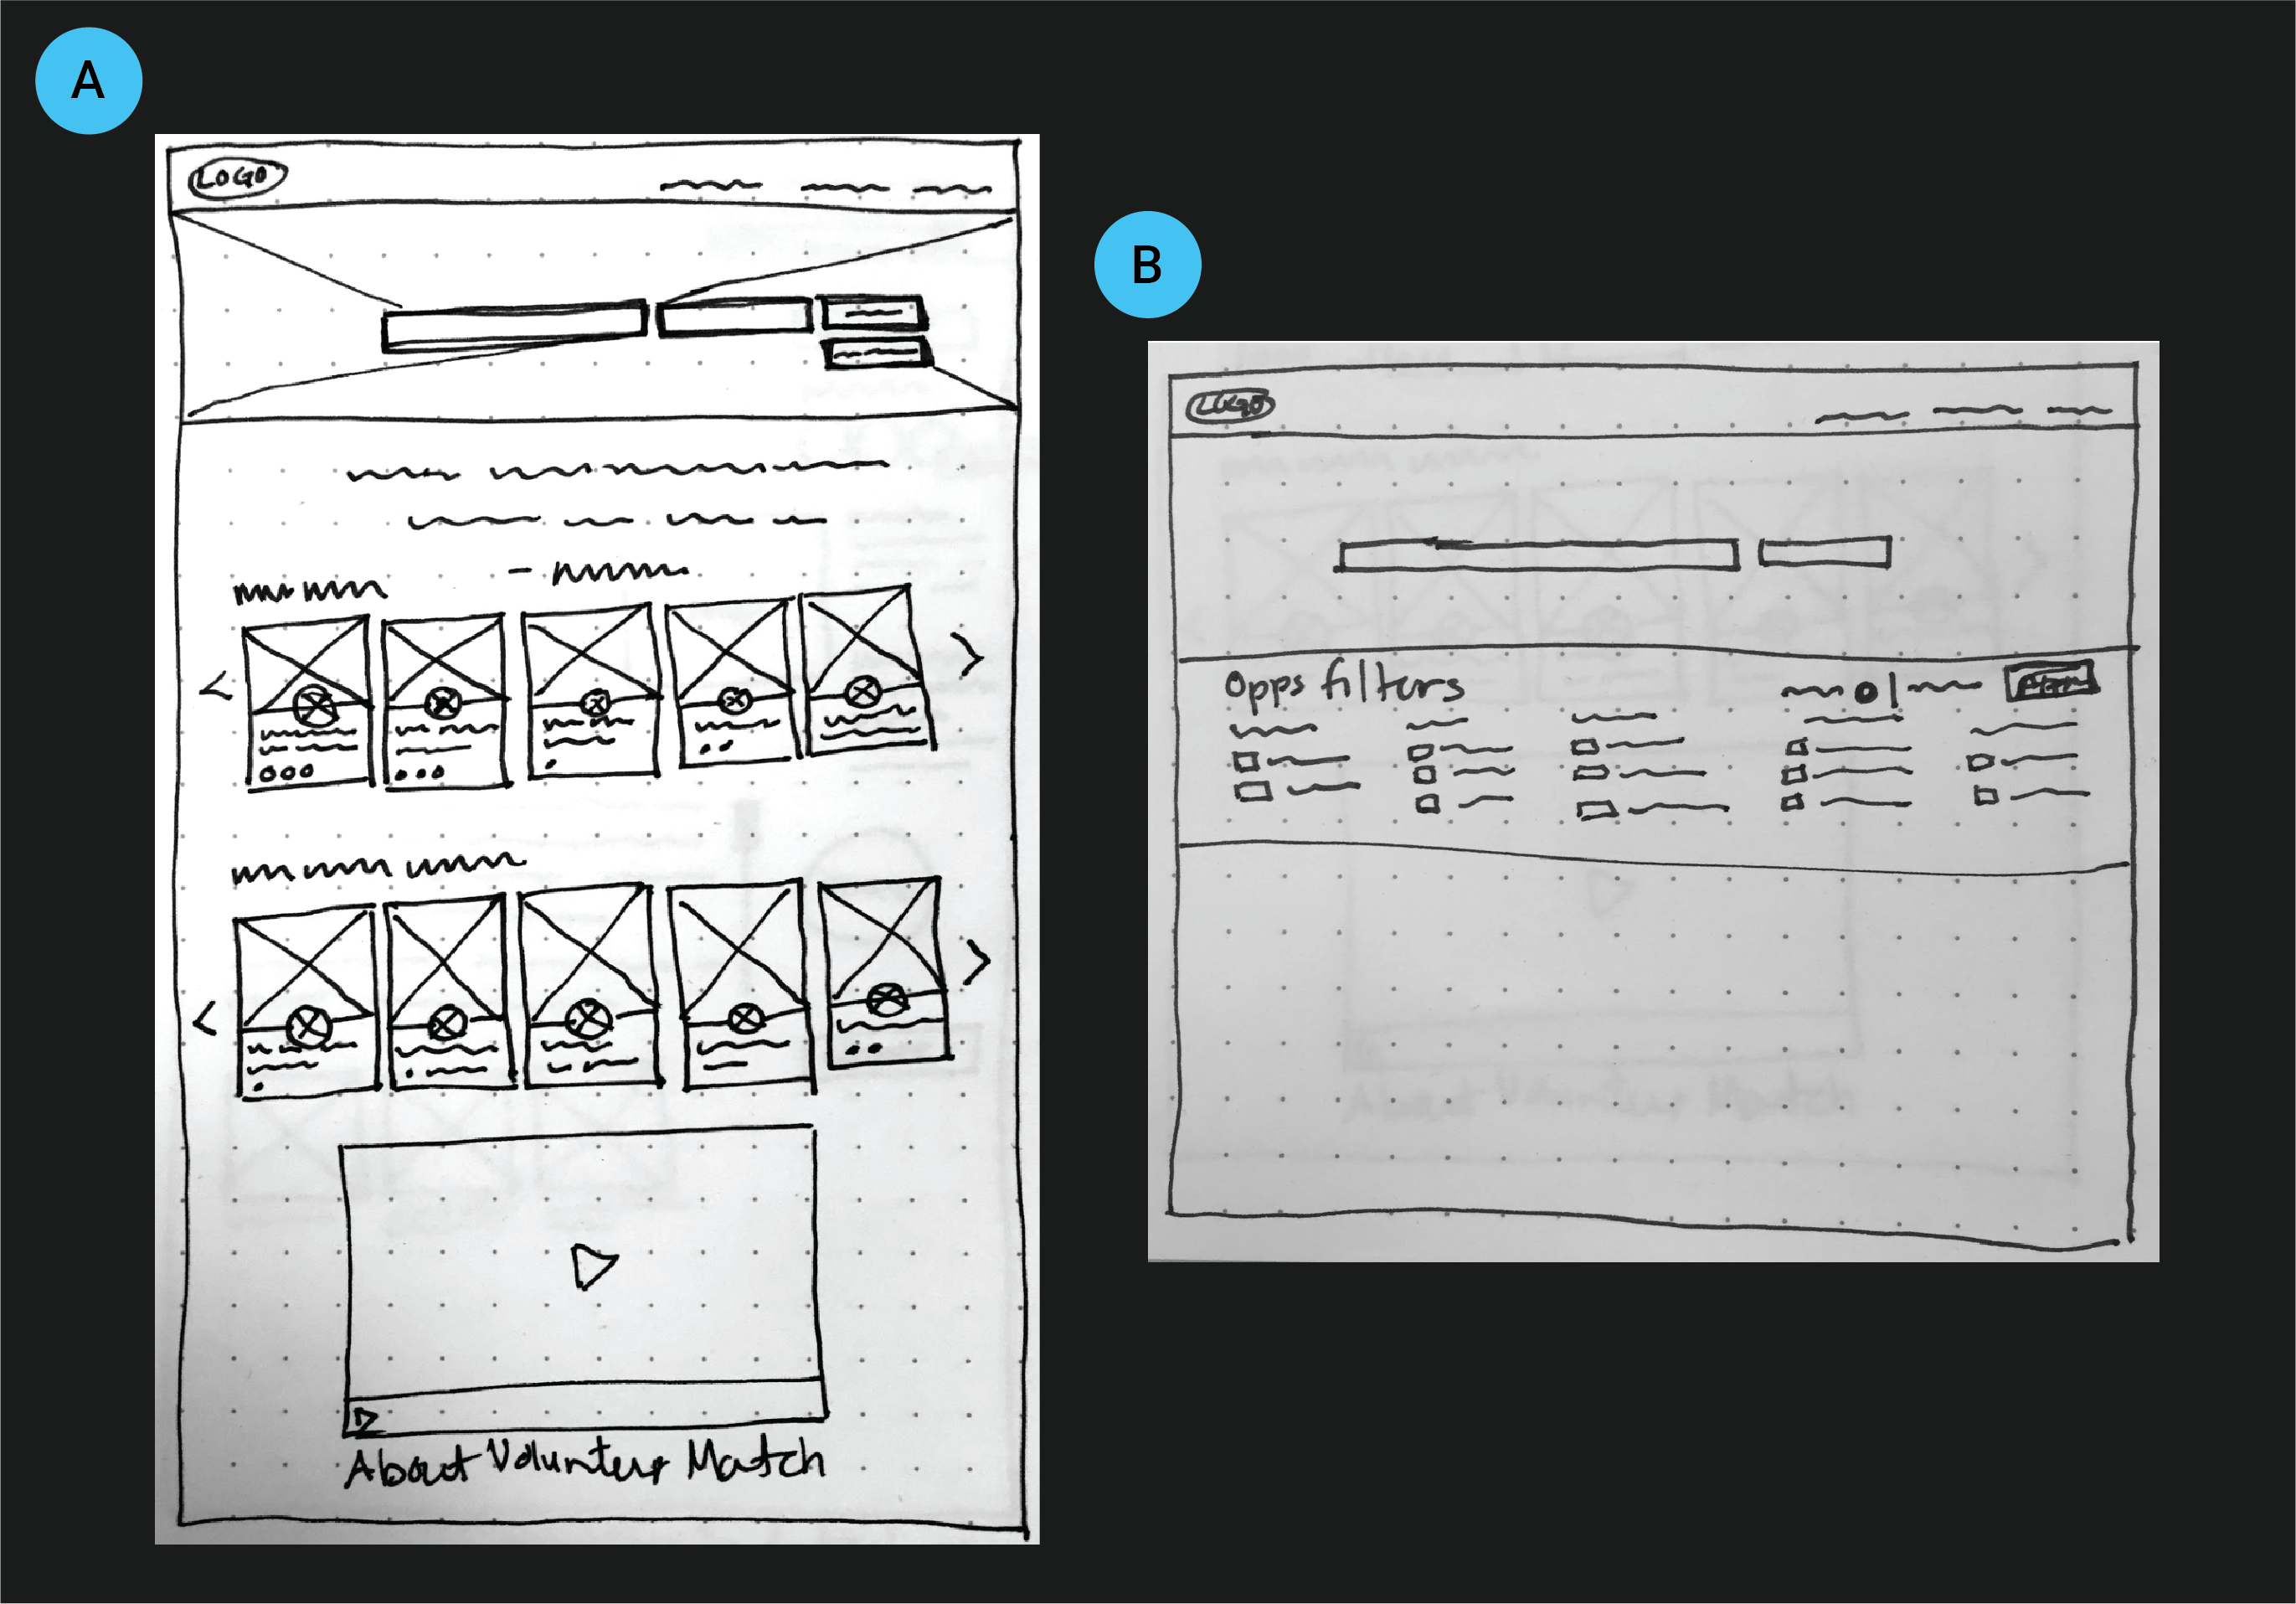 A
LOGO
About Volunteer Match
B
LOGO
Opps filters